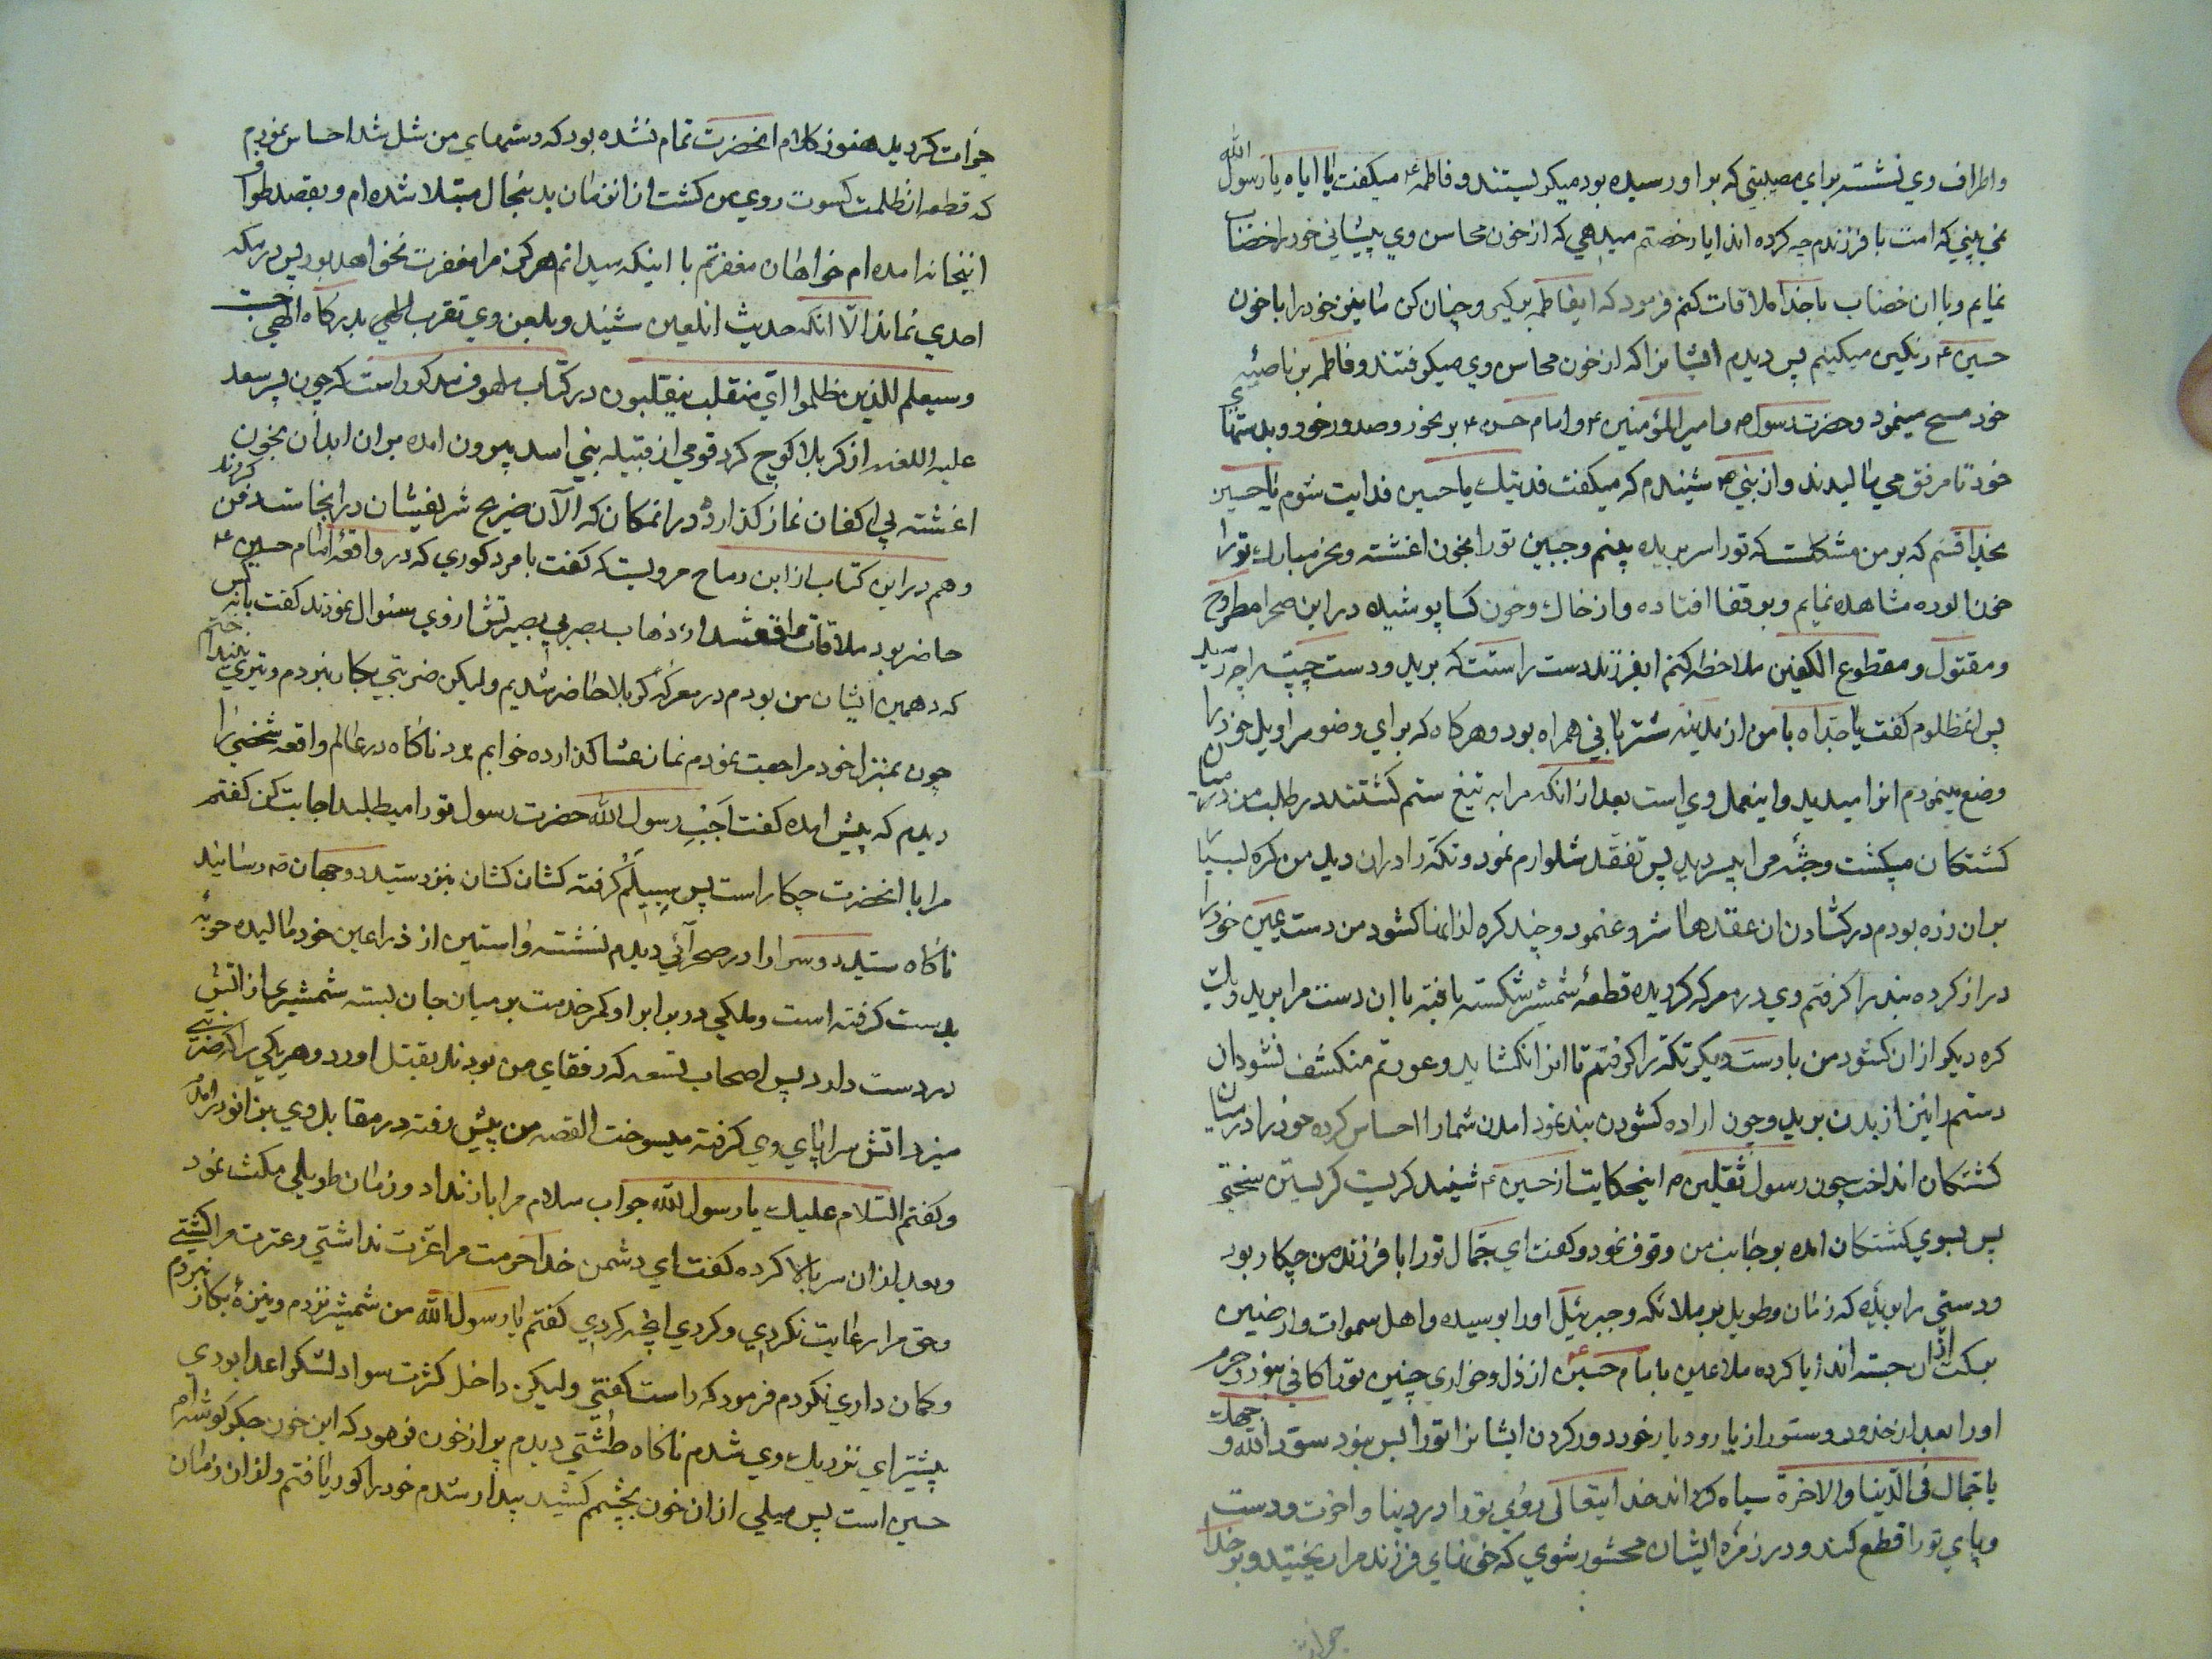 واطراف وي نشسته براي مصيبتي كه براو رسيده بود ميكريستند و فاطمه ع ميكفت يا اباه يا رسول الله
نمي بيني كه امت با فرزندم چه كرده اند ايا رخصتم ميدهي كه از خون محاسن وي پيشاني خود را خضاب
نمايم و با ان خضاب با خدا ملاقات كنم فرمود كه ايفاطمه بركير و چنان كن ما نيز خود را با خون
حسين ع رنكين ميكنيم پس ديدم ايشانرا كه از خون محاسن وي ميكرفتند و فاطمه بر ناصيه
خود مسح مينمود و حضرت رسول ص و امير المؤمنين ع و امام حسن ع بر نحور و صدور خود و بدستها
خود تا مرفق مي ماليدند و از نبي ص شنيدم كه ميكفت فديتك يا حسين فدايت شوم يا حسين
بخدا قسم كه بر من مشكلست كه تورا سر بريده بينم و جبين تورا بخون اغشته و نحر مبارك تورا
خون الوده مشاهده نمايم و بر قفا افتاده و از خاك و خون كسا پوشيده در اين صحرا مطروح
و مقتول و مقطوع الكفين ملاحظه كنم ايفرزند دست راستت كه بريد و دست چپترا چه رسيد
پس انمظلوم كفت يا جداه با من از مدينه شتربانی همراه بود و هركاه كه براي وضو سراويل خود را
وضع مينمودم انرا ميديد و اينعمل وي است بعد از انكه مرا به تيغ ستم كشتند در طلب من در ميان
كشتكان ميكشت و جثه مرا بيسر ديد پس تفقد شلوارم نمود و تكه را دران ديد من كره بسيار
بران زده بودم در كشادن ان عقدها شروع نمود و چند كره از انها كشود من دست يمين خود را
دراز كرده بند را كرفتم وي در معركه كرديده قطعه شمشير شكسته يافته با ان دست مرا بريد و يك
كره ديكر ازان كشود من با دست ديكر تكه را كرفتم تا انرا نكشايد و عورتم منكشف نشود ان
دستم را نيز از بدن بريد و چون اراده كشودن بند نمود امدن شما را احساس كرده خود را در ميان
كشتكان انداخت چون رسول ثقلين ص اينحكايت از حسين ع شنيد كريست كريستن سختي
پس بسوي كشتكان امده بر جانب من وقوف نمود و كفت اي جمال تورا با فرزند من چكار بود
و دستي را بريدي كه زمان طويل بر ملائكه و جبرئيل اورا بوسيده و اهل سموات و ارضين
بركت ازان جسته اند ايا كرده ملاعين با امام حسين ع از ذل و خواري چنين تورا كافي نبود و حرم
اورا بعد از خدور و ستور از يار و ديار خود دور كردن ايشانرا تورا بس نبود سود الله وجهك
يا جمال فی الدنيا والاخرة سياه كرداند خدايتعالی روي تورا در دنيا و اخرت و دست
و پاي تورا قطع كند و در زمره ايشان محشور شوي كه خونهاي فرزند مرا ريختيد و بر خدا
جرات
جرات كرديد هنوز كلام انحضرت تمام نشده بود كه دستهاي من شل شد احساس نمودم
كه قطعه از ظلمت كسوت روي من كشت از انزمان بدينحال مبتلا شده ام و بقصد طواف
اينخانه امده ام خواهان مغفرتم با اينكه ميدانم هركز مرا مغفرت نخواهد بود پس در مكه
احدي نماند الا انكه حديث انلعين شنيد و بلعن وي تقرب الهي بدركاه الهي جست
وسيعلم الذين ظلموا اي منقلب ينقلبون در كتاب ملهوف مذكور است كه چون پسر سعد
عليه اللعنه از كربلا كوچ كرد قومي از قبيله بني اسد بيرون امده بران ابدان بخون
اغشته بي اكفان نماز كذارده در انمكان كه الآن ضريح شريفشان در انجاست دفن كردند
وهم در اين كتاب از ابن رماح مرويست كه كفت با مرد كوري كه در واقعه امام حسين ع
حاضر بود ملاقات واقعشد از ذهاب بصر بي بصيرتش از وي سئوال نمودند كفت با نه كس
كه دهمين ايشان من بودم در معركه كربلا حاضر شديم وليكن ضربتي بكار نبردم و تيري نينداختم
چون بمنزل خود مراجعت نمودم نماز عشا كذارده خوابم برد ناكاه در عالم واقعه شخصي را
ديدم كه پيش امده كفت اجب رسول الله حضرت رسول تورا ميطلبد اجابت كن كفتم
مرا با انحضرت چكار است پس سبيلم كرفته كشان كشان بنزد سيد دو جهان ص رسانيد
ناكاه سيد دوسرا را در صحرائي ديدم نشسته و استين از ذراعين خود ماليده حربه
بدست كرفته است و ملكي در برابر او كمر خدمت بر ميان جان بسته شمشيري از اتش
در دست دارد پس اصحاب تسعه كه رفقاي من بودند بقتل اورد و هر يكي را كه ضربتي
ميزد اتش سراپاي وي كرفته ميسوخت القصه من پيش رفته در مقابل وي بزانو در امدم
و كفتم السلام عليك يا رسول الله جواب سلام مرا باز نداد و زمان طويلي مكث نمود
و بعد ازان سر بالا كرده كفت اي دشمن خدا حرمت مرا عزت نداشتي و عترت مرا كشتي
و حق مرا رعايت نكردي و كردي انچه كردي كفتم يا رسول الله من شمشير نزدم و نيزه بكار نبردم
و كمان داري نكردم فرمود كه راست كفتي وليكن داخل كثرت سواد لشكر اعدا بودي
پيشتر اي نزديك وي شدم ناكاه طشتي ديدم پر از خون فرمود كه اين خون جكر كوشه ام
حسين است پس ميلي ازان خون بچشمم كشيد بيدار شدم خود را كور يافتم و ازان زمان